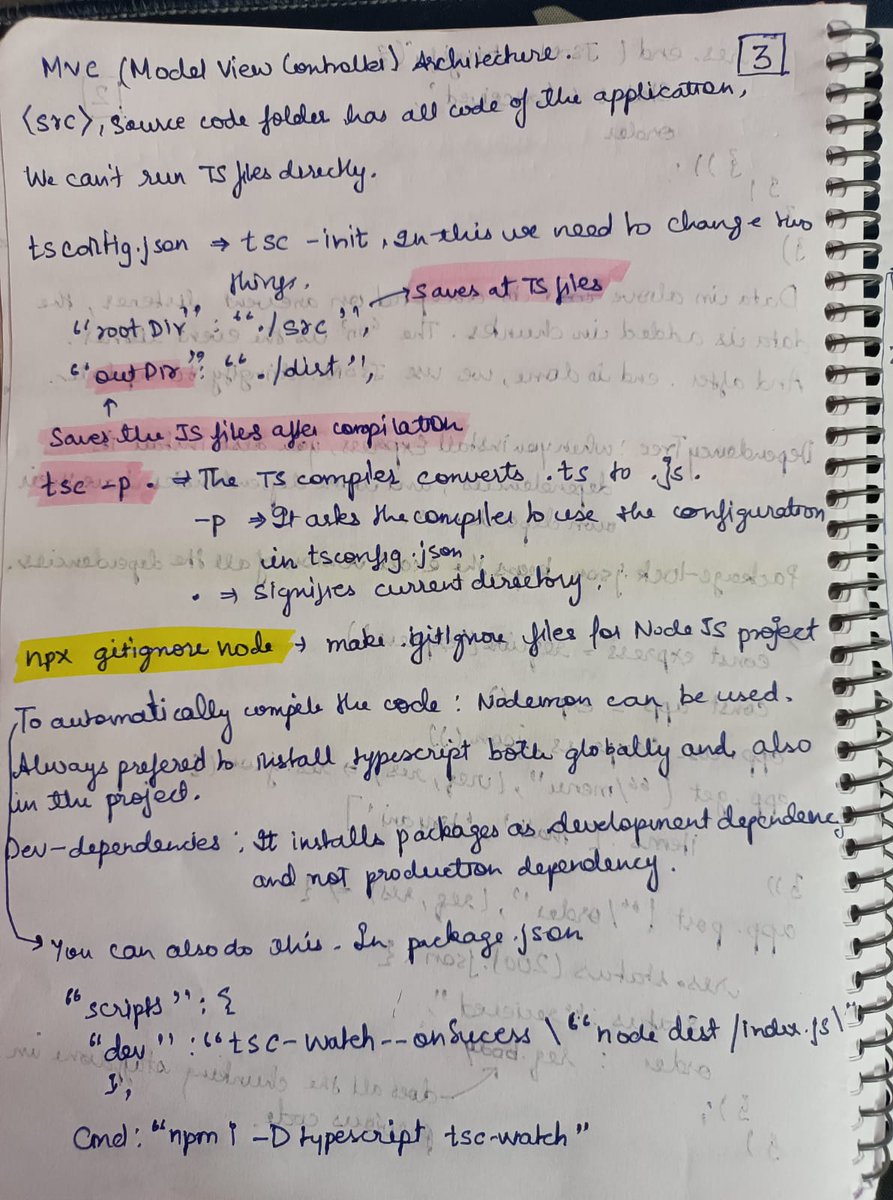 MVC (Model View Controller) Architecture. 3
<src>, Source code folder has all code of the application,
We can't run TS files directly.
tsconfig.json ⇒ tsc -init, In this we need to change two
things.
"rootDir" : "./src", → Saves at TS files
"outDir": "./dist",
↑
Saves the JS files after compilation
tsc -p . ⇒ The TS compiler converts .ts to .js.
-p ⇒ It asks the compiler to use the configuration
in tsconfig.json.
. ⇒ Signifies current directory.
npx gitignore node → make .gitIgnore files for Node JS project
To automatically compile the code : Nodemon can be used.
Always prefered to install typescript both globally and also
in the project.
Dev-dependencies : It installs packages as development dependency
and not production dependency.
→ You can also do this. In package.json
"scripts" : {
"dev" : "tsc-watch--onSucess \"node dist/index.js\"
},
Cmd : "npm i -D typescript tsc-watch"